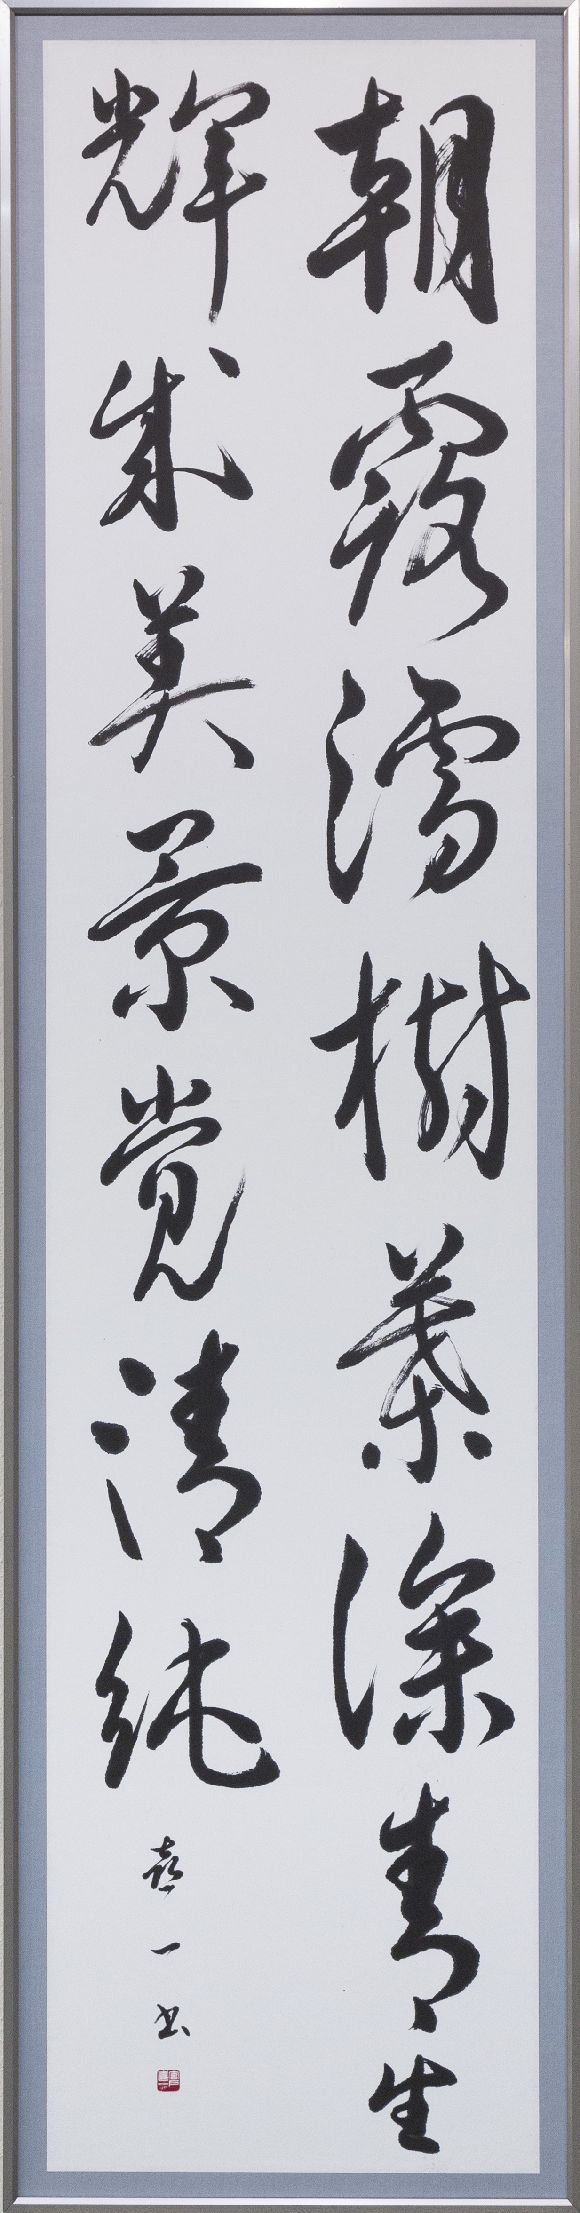 朝露濡樹葉深青生
輝成美景覚清純
喜一書